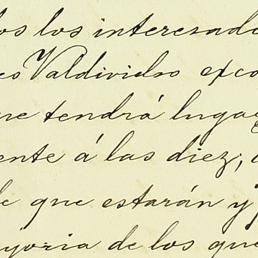 los los interesad
es Valdividso exco
ue tendrá lugar
ente á las diez,
de que estarán y
ayoria de los que